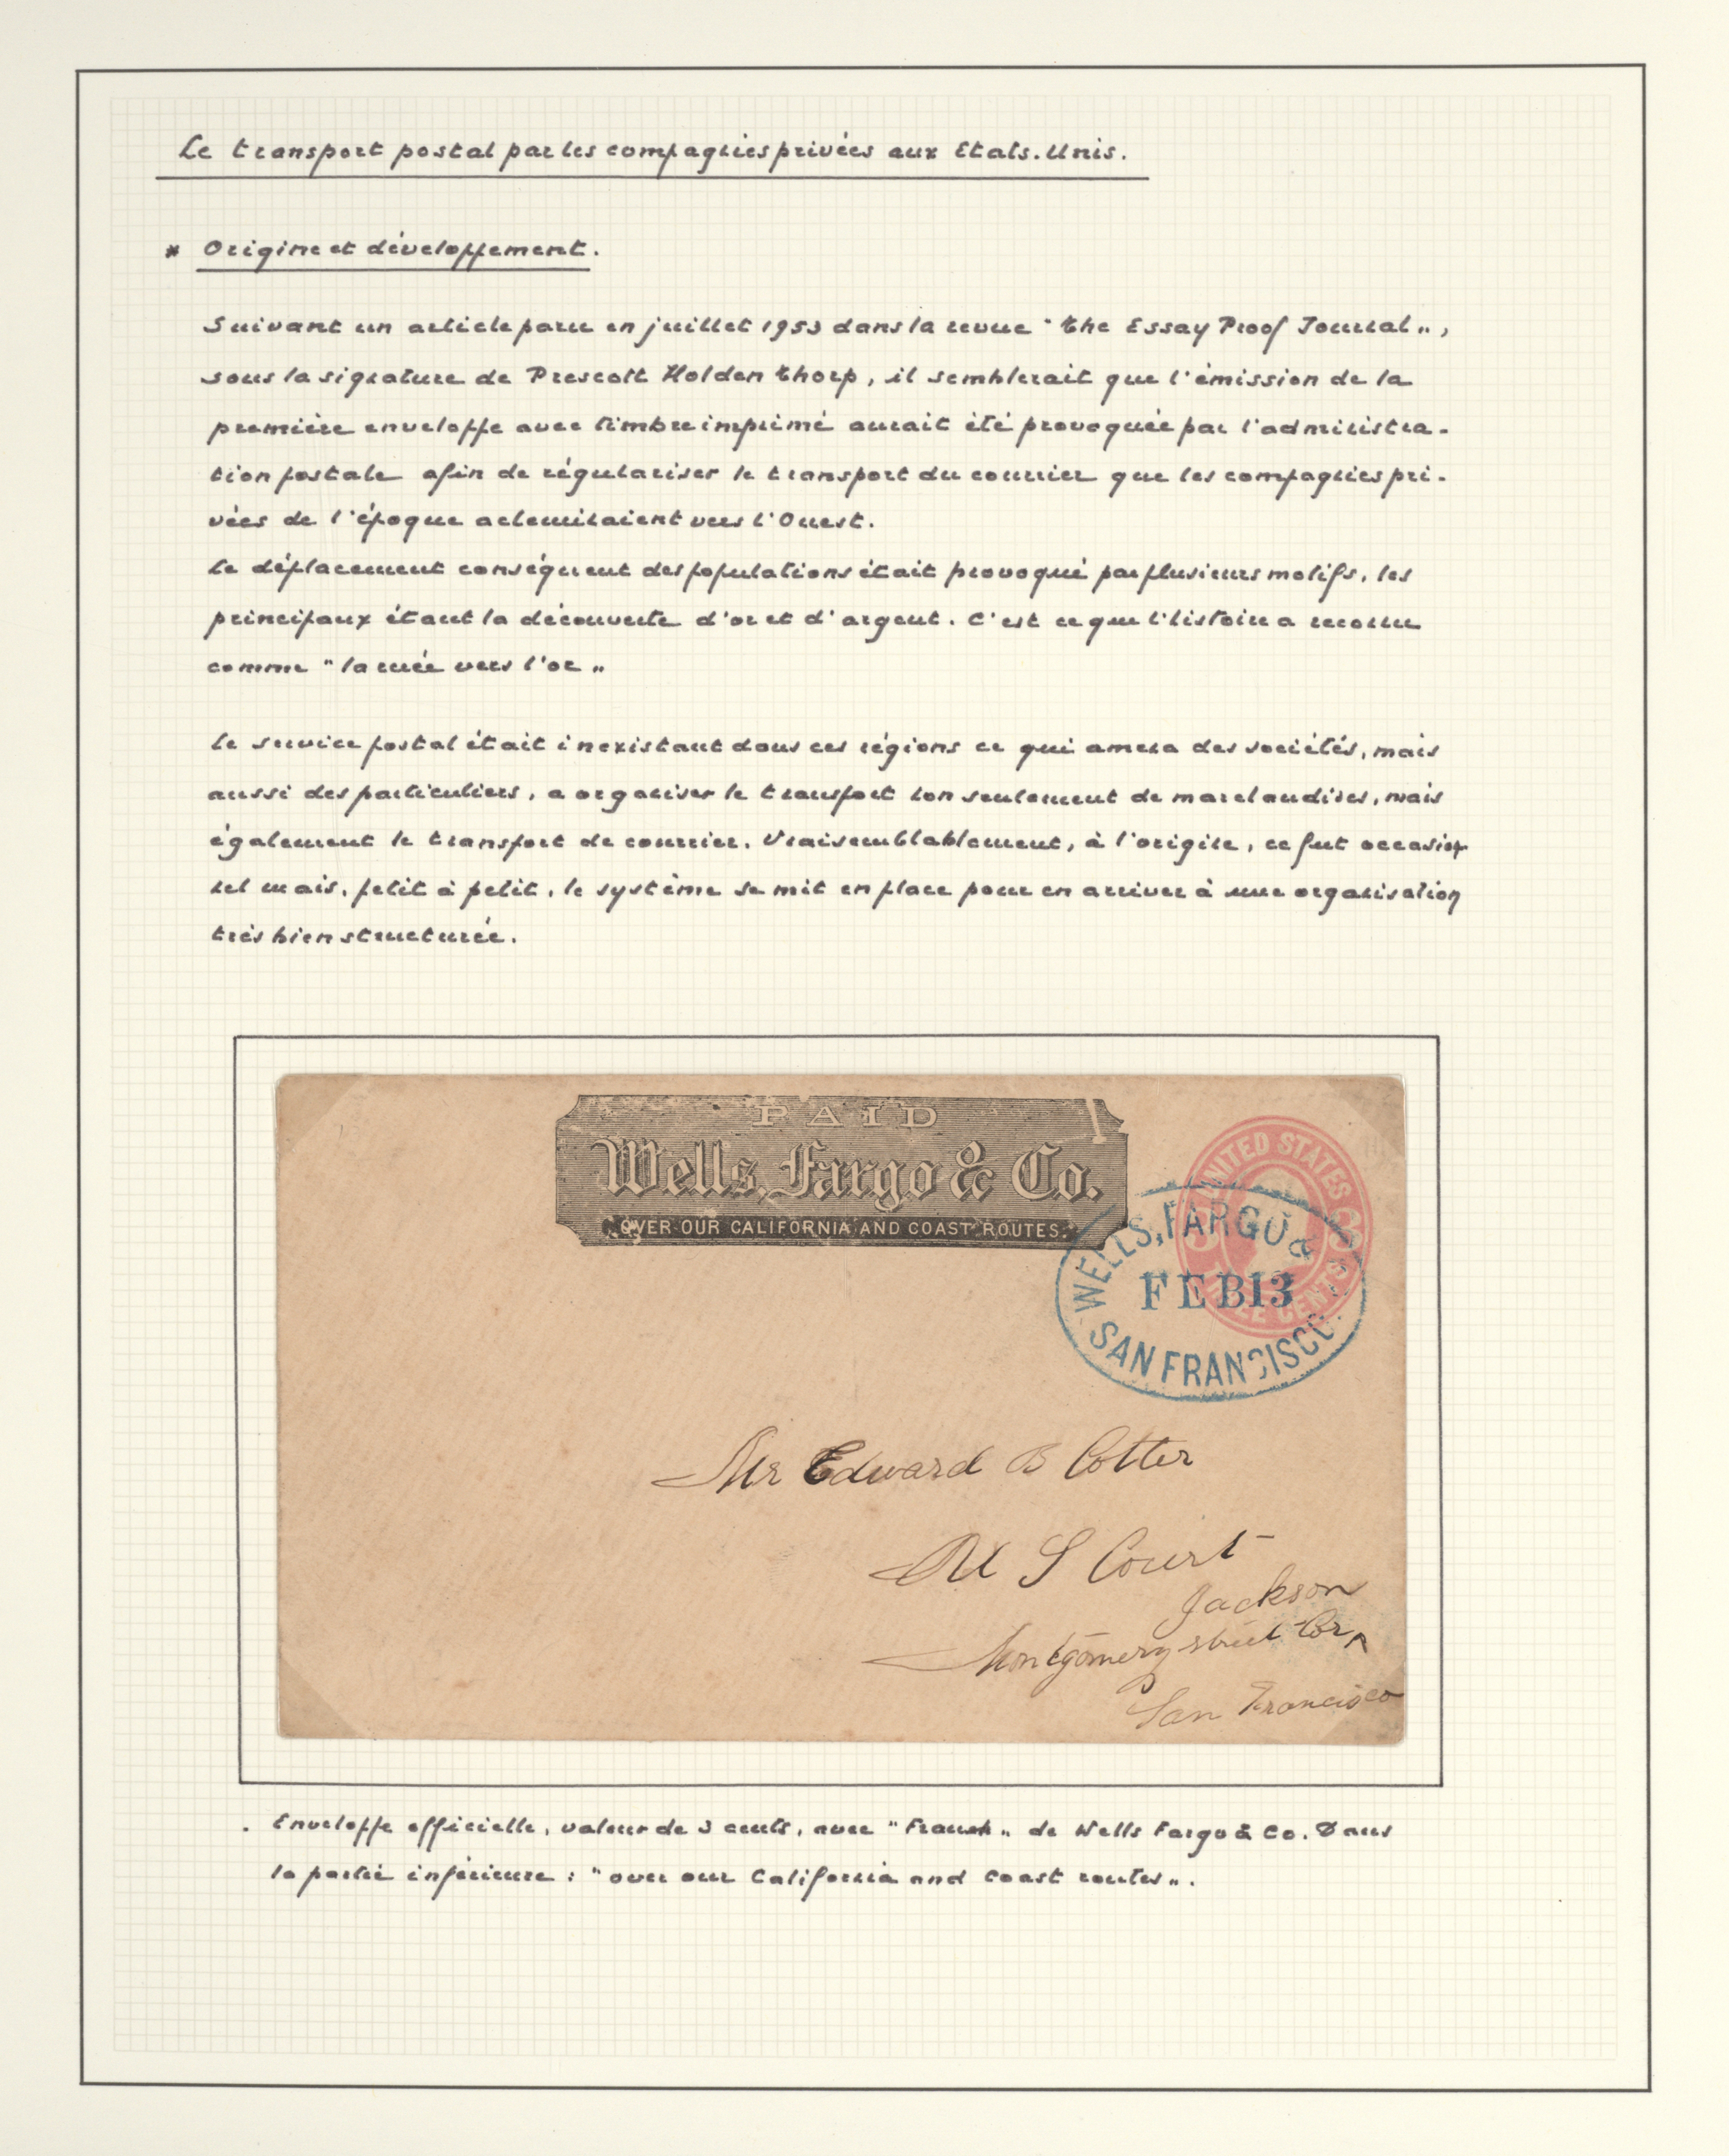 Le transport postal par les compagnies privées aux Etats-Unis.
* Origine et développement.
Suivant un article paru en juillet 1953 dans la revue "The Essay Proof Journal",
sous la signature de Prescott Holden Thorp, il semblerait que l'émission de la
première enveloppe avec timbre imprimé aurait été provoquée par l'administra-
tion postale afin de régulariser le transport du courrier que les compagnies pri-
vées de l'époque acheminaient vers l'Ouest.
Le déplacement conséquent des populations était provoqué par plusieurs motifs, les
principaux étant la découverte d'or et d'argent. C'est ce que l'histoire a reconnu
comme "la ruée vers l'or"
Le service postal était inexistant dans ces régions ce qui amena des sociétés, mais
aussi des particuliers, a organiser le transport non seulement de marchandises, mais
également le transport de courrier. Vraisemblablement, à l'origine, ce fut occasion
nel mais, petit à petit, le système se mit en place pour en arriver à une organisation
très bien structurée.
PAID
Wells, Fargo & Co.
OVER OUR CALIFORNIA AND COAST ROUTES.
UNITED STATES
3 3
THREE CENTS
WELLS, FARGO &
FEB 13
SAN FRANCISCO.
Mr Edward B Cotter
U S Court
Jackson
Montgomery street Cor
San Francisco
. Enveloppe officielle, valeur de 3 cents, avec "Frank" de Wells Fargo & Co. Dans
la partie inférieure : "over our California and Coast routes".